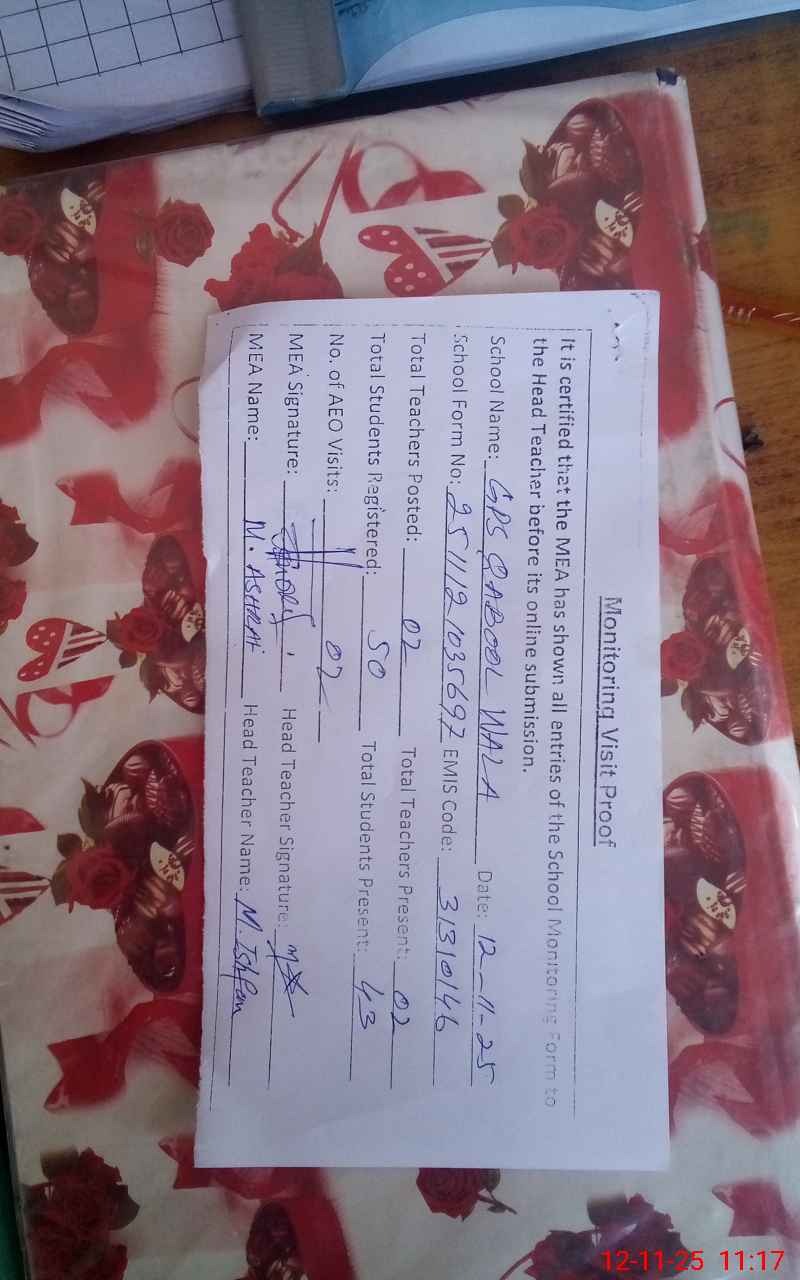 Monitoring Visit Proof
It is certified that the MEA has shown all entries of the School Monitoring Form to
the Head Teacher before its online submission.
School Name: GPS QABOOL WALA Date: 12-11-25
School Form No: 2511121035697 EMIS Code: 31310146
Total Teachers Posted: 02 Total Teachers Present: 02
Total Students Registered: 50 Total Students Present: 43
No. of AEO Visits: 02
MEA Signature: Head Teacher Signature:
MEA Name: M. ASHRAF Head Teacher Name: M. Ishfan
12-11-25 11:17